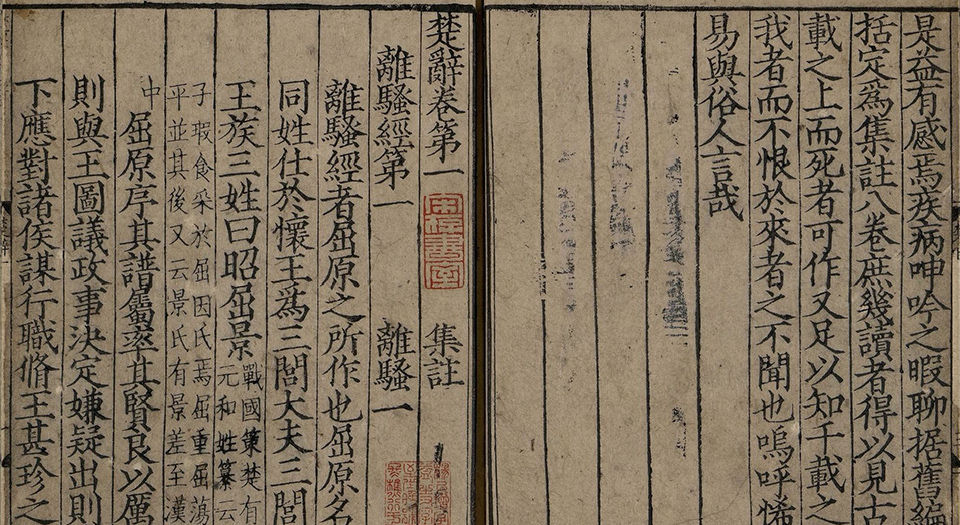 是益有感焉疾病呻吟之暇聊据舊編
括定為集註八卷庶幾讀者得以見古
載之上而死者可作又足以知千載之
我者而不恨於來者之不聞也嗚呼悕
易與俗人言哉
楚辭卷第一 集註
離騷經第一 離騷一
離騷經者屈原之所作也屈原名
同姓仕於懷王為三閭大夫三閭
王族三姓曰昭屈景
戰國策楚有
元和姓纂云
子瑕食采於屈因氏焉屈重屈蕩
平並其後又云景氏有景差至漢
中
屈原序其譜屬率其賢良以厲
則與王圖議政事決定嫌疑出則
下應對諸侯謀行職脩王甚珍之